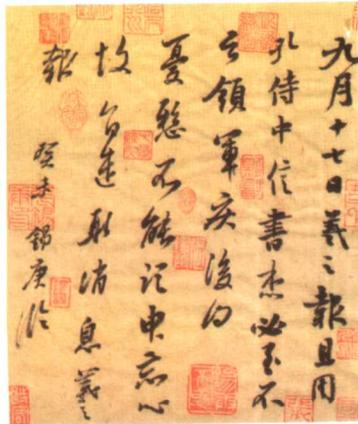 九月十七日羲之報且因
孔侍中信書想必至不
知領軍疾後問
憂懸不能須臾忘心
故遣取消息羲之
報
癸未錫庚臨